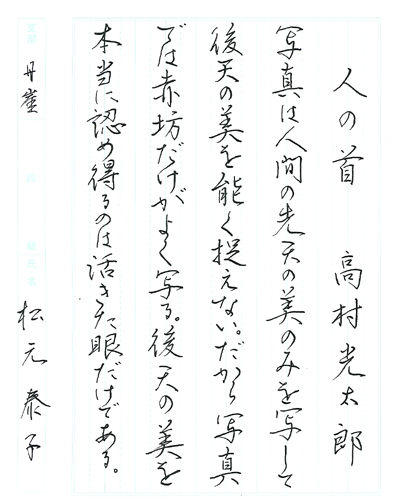 人の首 高村光太郎
写真は人間の先天の美のみを写して
後天の美を能く捉えない。だから写真
では赤坊だけがよく写る。後天の美を
本当に認め得るのは活きた眼だけである。
丹崖 松元泰子